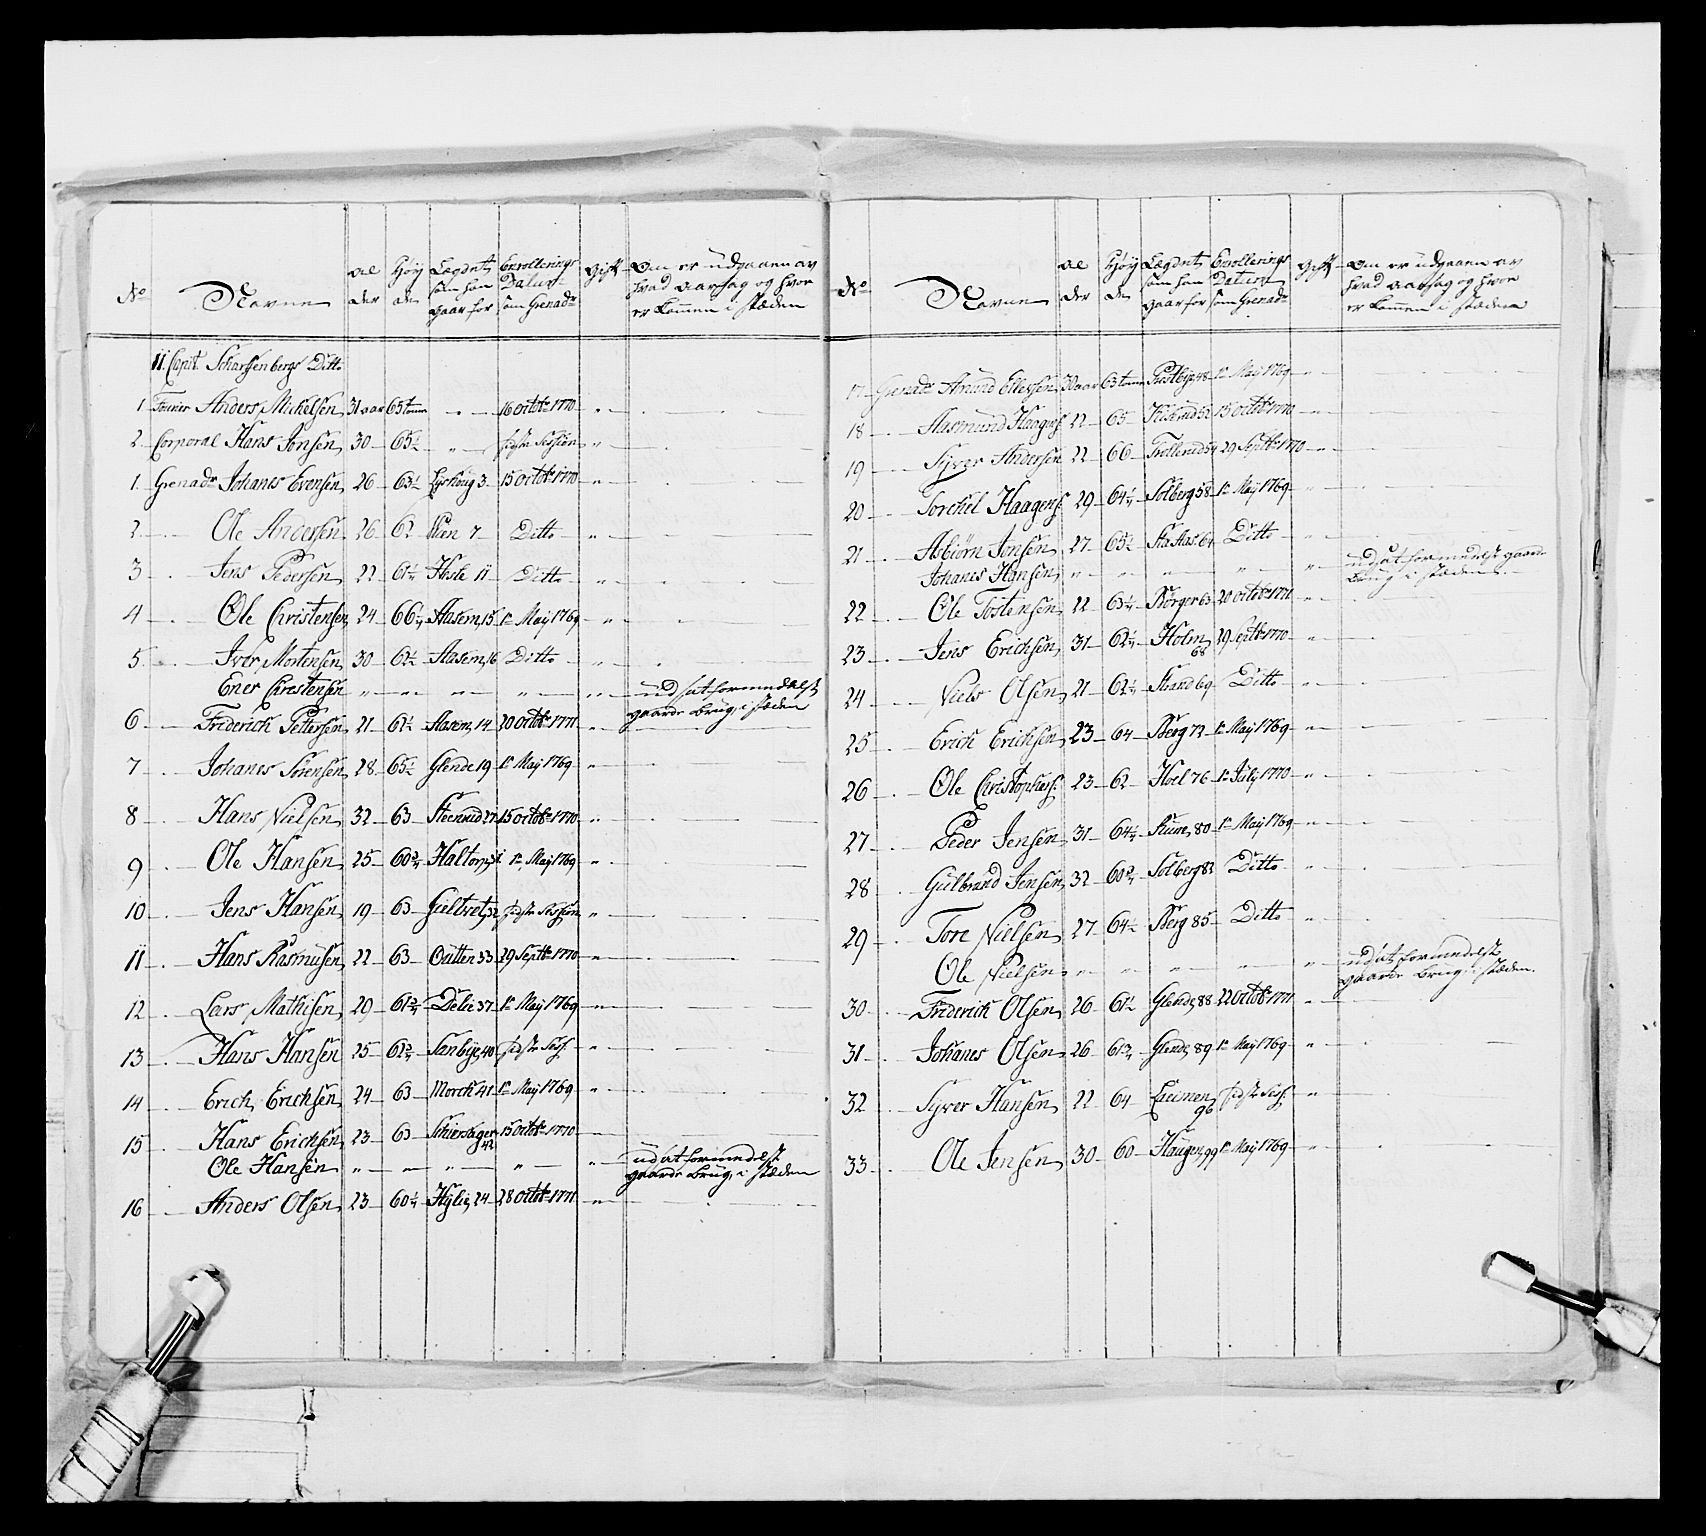 No Navne Al der Høy de Lægdet som han gaar for Enrollerings Datum som Grenadr Gift Om er udgaaen av hvad aarsag og hvor er komen i stæden
II. Capit. Scharffenbergs Ditto
1 Fourier Anders Mickelsen 31 aar 65 tom " 16 Octobr 1770 "
2 Corporal Hans Jonsen 30 65½ " sidste Session "
1. Grenadr Johanes Evensen 26 63½ 3 15 Octobr 1770 "
2 Ole Andersen 26 62 7 Ditto "
3 Jens Pedersen 22 61¼ Hesle 11 Ditto "
4 Ole Christensen 24 66¼ Aasern 15 1ste May 1769 "
5. Iver Mortensen 30 62½ Aasern 16 Ditto "
Ener Christensen " " " " " udsat formedelst
gaards brug, i stæden
6 Frederich Pettersen 21 62½ Aasern 14 20 Octobr 1771 "
7 Johanes Sørensen 28 65½ Glende 19 1ste May 1769 "
8 Hans Nielsen 32 63 Steenrud 27 15 Octobr 1770 "
9 Ole Hansen 25 60¾ 1ste May 1769 "
10 Jens Hansen 19 63 Gieltvet 32 sidste Session "
11 Hans Rasmusen 22 63 33 29 Septbr 1770 "
12 Lars Mathisen 29 61¾ Delie 37 1ste May 1769 "
13 Hans Hansen 25 62¾ Sanbye 40 sidste Sess: "
14 Erich Erichsen 24 63 Morck 41 1ste May 1769 "
15 Hans Erichsen 23 63 42 15 Octobr 1770
Ole Hansen " " " " " udsat formedelst
gaards brug, i stæden
16 Anders Olsen 23 60¼ 24 28 Octobr 1771 "
No Navne Al der Høy de Lægdet som han gaar for Enrollerings Datum som Grenadr Gift Om er udgaaen av hvad aarsag og hvor er komen i stæden
17 Grenadr Amund Ellefsen 30 aar 63 tom 48 1ste May 1769 "
18 Aasmund Haagens: 22 65 52 15 Octobr 1770 "
19 Syver Andersen 22 66 Trollerud 54 29 Septbr 1770 "
20 Torchel Haagens: 29 64¼ Solberg 58 1ste May 1769 "
21 Asbiørn Jonsen 27 65½ 61 Ditto "
Johanes Hansen " " " " " udsat formedelst gaards
brug i stæden
22 Ole Tostensen 22 63¼ Børger 63 20 Octobr 1771 "
23 Jens Erichsen 31 62¼ Holm 68 29 Septbr 1770 "
24 Niels Olsen 21 62¼ Strand 69 Ditto "
25 Erich Erichsen 23 64 Berg 72 1ste May 1769 "
26 Ole Christophers: 23 62 Hoel 76 1ste July 1770 "
27 Peder Jensen 31 64¼ 80 1ste May 1769 "
28 Gulbrand Jensen 32 60¾ Solberg 82 Ditto "
29 Tore Nielsen 27 64½ Berg 85 Ditto "
Ole Nielsen " " " " " udsat formedelst
gaards brug, i stæden.
30 Friderich Olsen 26 61½ Glende 88 22 Octobr 1771 "
31 Johanes Olsen 26 61¾ Glende 89 1ste May 1769 "
32 Syver Hansen 22 64 96 sidste Sess: "
33 Ole Jensen 30 60 Haugen 99 1ste May 1769 "